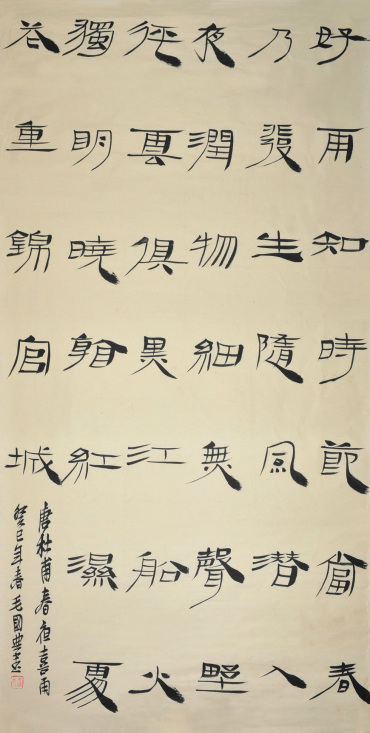 好雨知時節當春
乃發生隨風潛入
夜潤物細無聲野
徑雲俱黑江船火
獨明曉看紅濕處
花重錦官城
唐杜甫春夜喜雨
癸巳年春毛國典書